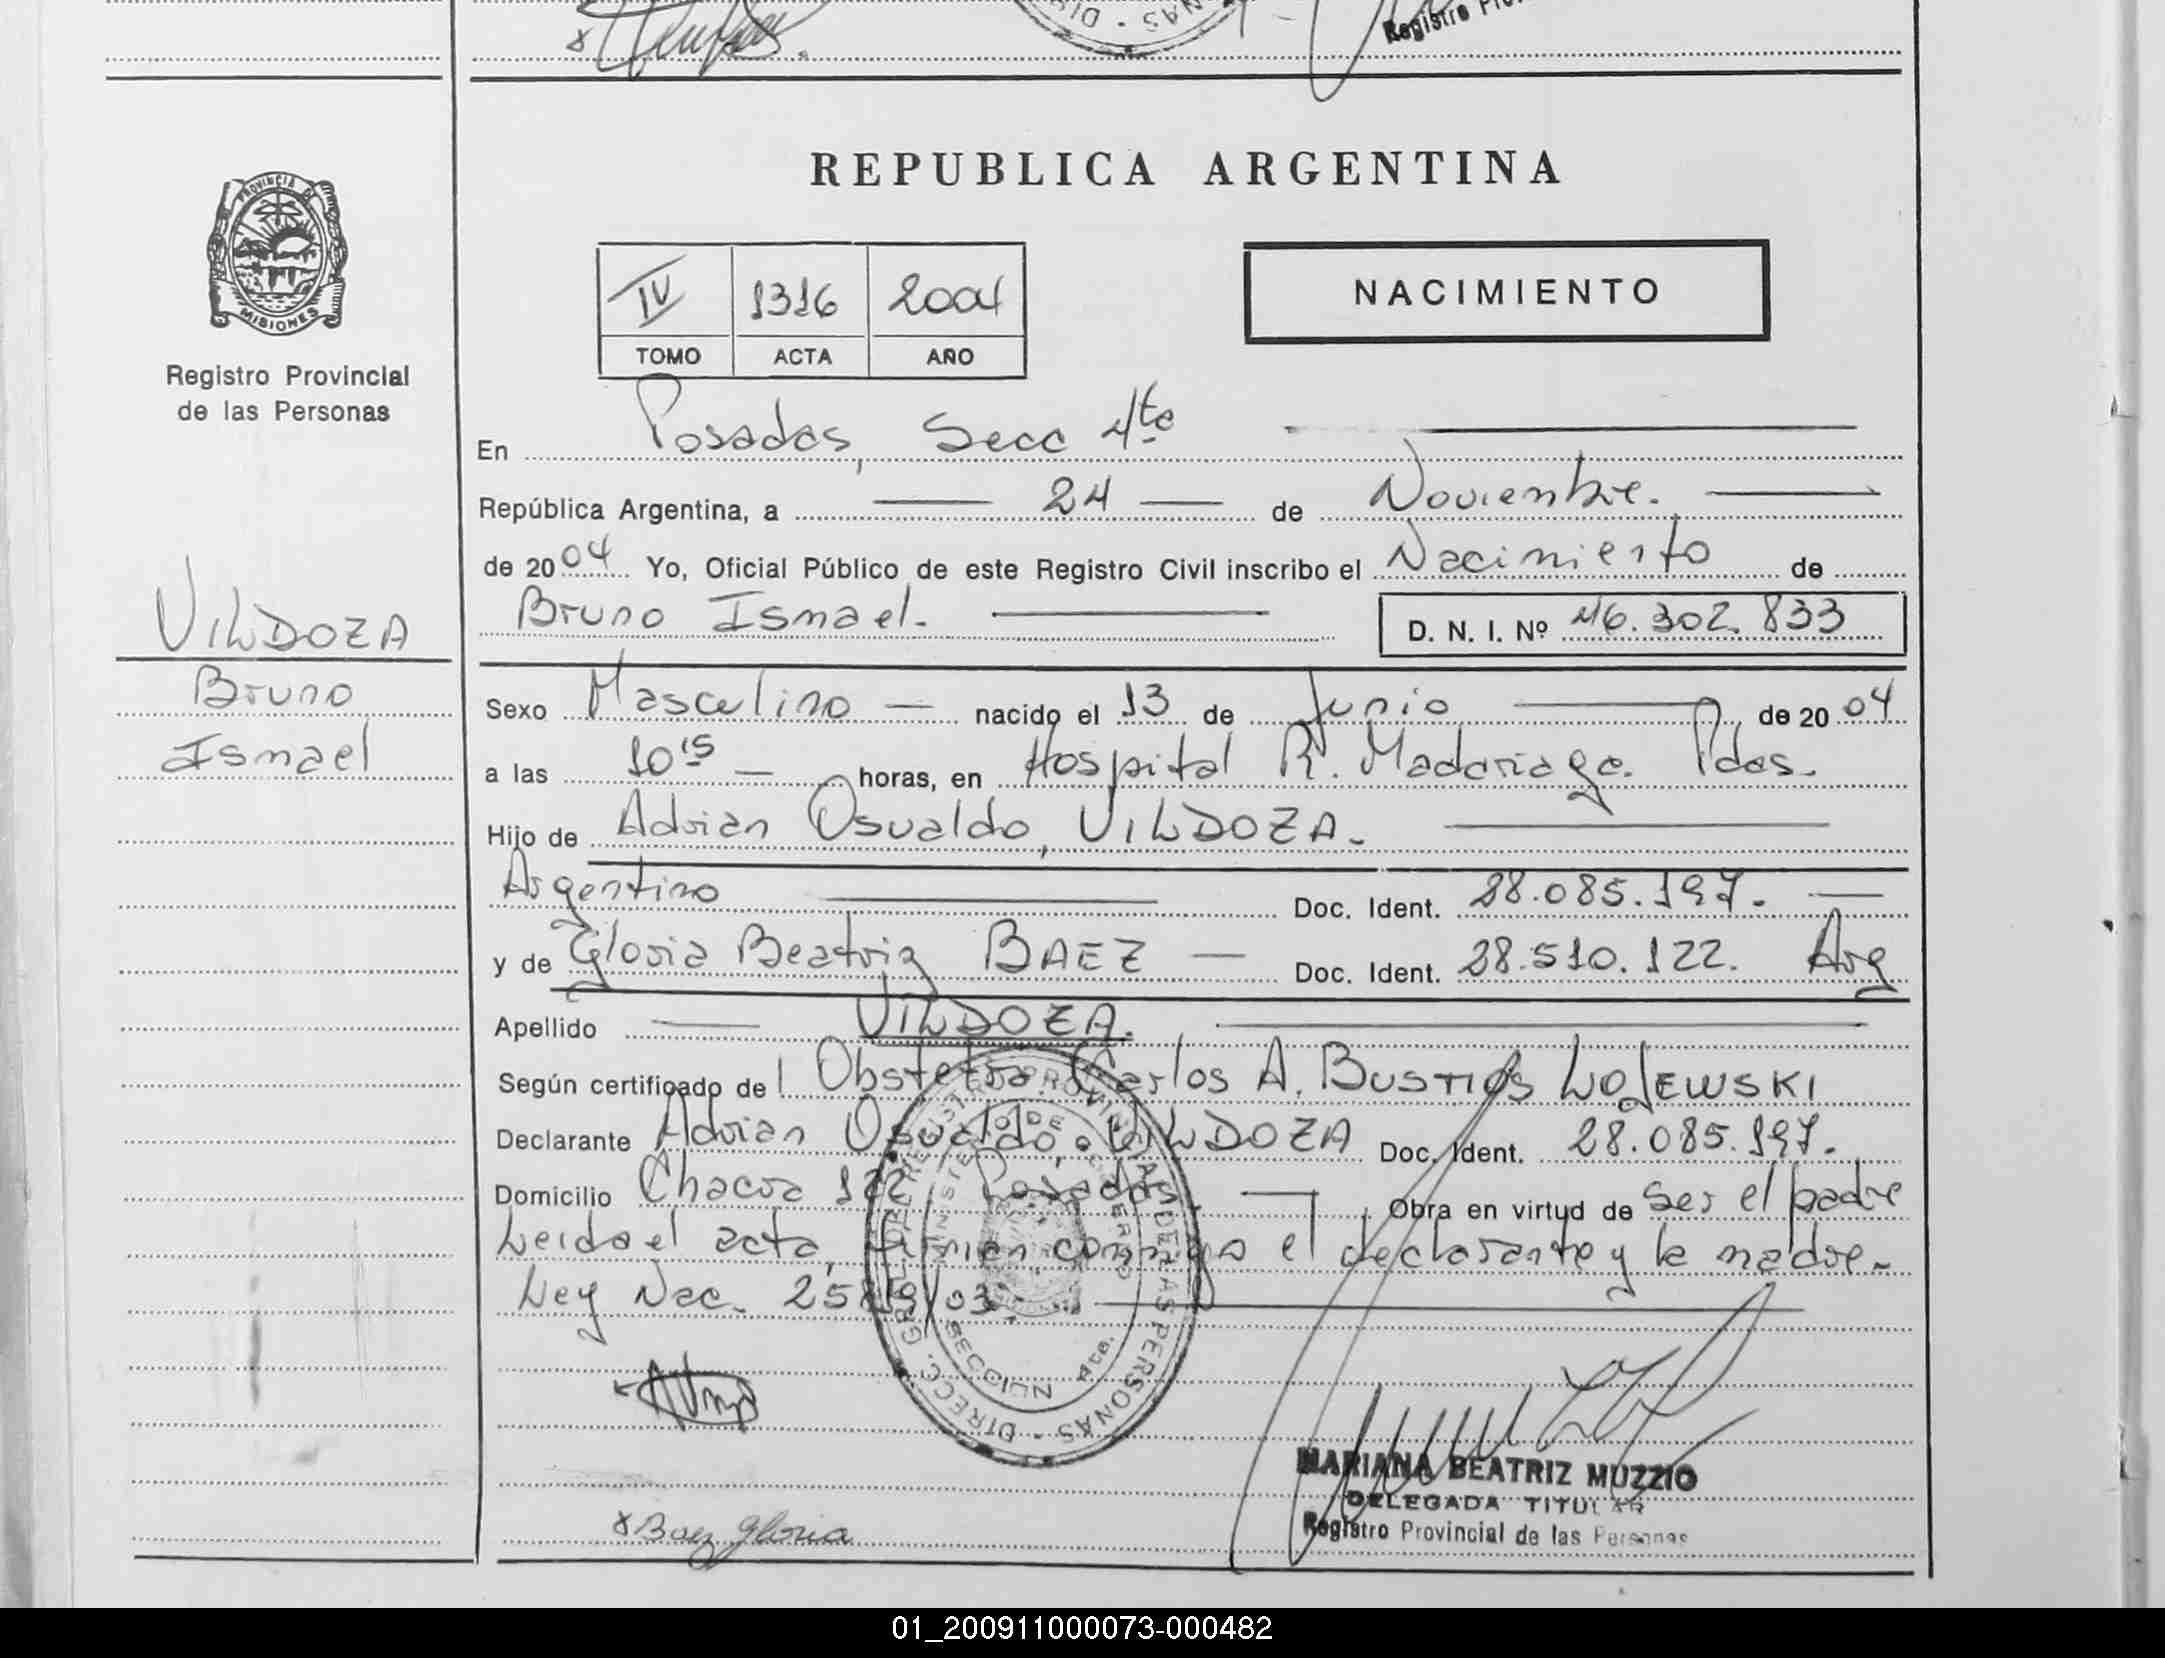 Registro
REPUBLICA ARGENTINA
PROVINCIA DE
MISIONES
Registro Provincial
de las Personas
IV 1316 2004
TOMO ACTA AÑO
NACIMIENTO
En Posadas, Secc 4ta
República Argentina, a 24 de Noviembre.
de 2004 Yo, Oficial Público de este Registro Civil inscribo el Nacimiento de
Bruno Ismael. D. N. I. Nº 46.302.833
VILDOZA
Bruno
Ismael
Sexo Masculino nacido el 13 de Junio de 2004
a las 10 15 horas, en Hospital R. Madariaga. Pdas.
Hijo de Adrian Osvaldo, VILDOZA.
Argentino Doc. Ident. 28.085.197.
y de Gloria Beatriz BAEZ Doc. Ident. 28.510.122. Arg
Apellido VILDOZA.
Según certificado de Obstetra Carlos A. BUSTIOS WOJEWSKI
Declarante Adrian Osvaldo, VILDOZA Doc. Ident. 28.085.197.
Domicilio Chacra 122 Posadas, Obra en virtud de ser el padre
Leida el acta, firman conmigo el declarante y la madre.
Ley Nac. 03
SECCION 4ta.
Baez Gloria
MARIANA BEATRIZ MUZZIO
DELEGADA TITULAR
Registro Provincial de las Personas
01_200911000073-000482